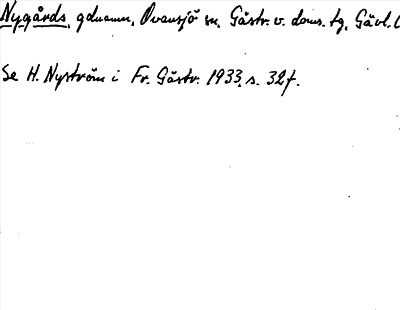 Nygårds, gdnamn, Ovansjö sn, Gästr. v. doms. tg, Gävl. l
Se H. Nyström i Fr. Gästr. 1933, s. 32 f.